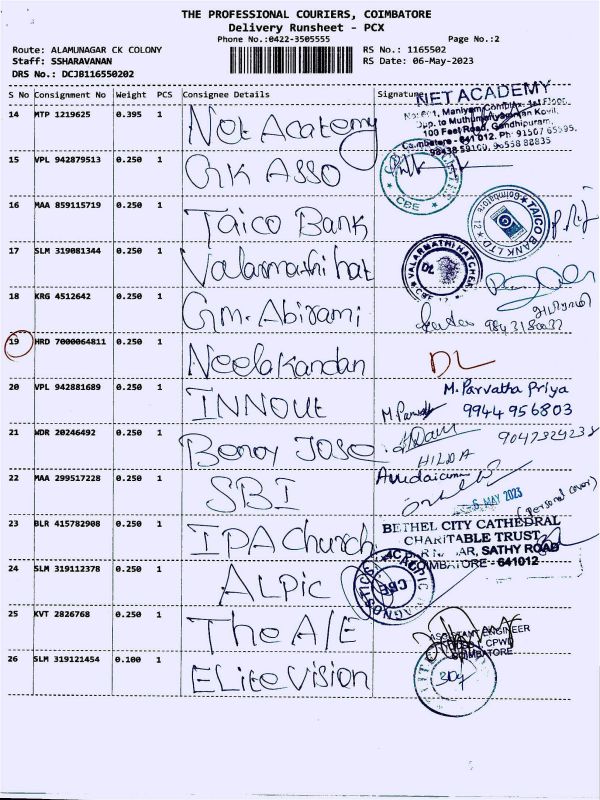 THE PROFESSIONAL COURIERS, COIMBATORE
Delivery Runsheet - PCX
Phone No.:0422-3505555 Page No.:2
Route: ALAMUNAGAR CK COLONY RS No.: 1165502
Staff: SSHARAVANAN RS Date: 06-May-2023
DRS No.: DCJB116550202
S No Consignment No Weight PCS Consignee Details Signature
NET ACADEMY
14 MTP 1219625 0.395 1 Net Acatemy
100 Feet Road, Gandhipuram,
Coimbatore - 641 012. Ph: 91507 65595,
98438 59100, 96558 88835
15 VPL 942879513 0.250 1 GK ASSO
CBE
16 MAA 859115719 0.250 1 Taico Bank
TAICO BANK LTD Coimbatore 12
17 SLM 319081344 0.250 1 Valarmathi hat
VALARMATHI HATCHERI
DL
18 KRG 4512642 0.250 1 Gm. Abirami
19 HRD 7000064811 0.250 1 Neelakandan DL
20 VPL 942881689 0.250 1 INNOUt
M. Parvatha Priya
9944 956803
21 WDR 20246492 0.250 1 Benoy Jose
HILDA
22 MAA 299517228 0.250 1 SBI
MAY 2023
(personal cover)
23 BLR 415782908 0.250 1 IPA Church
BETHEL CITY CATHEDRAL
CHARITABLE TRUST
SATHY ROAD
COIMBATORE - 641012
24 SLM 319112378 0.250 1 ALPIC
CBE
25 KVT 2826768 0.250 1 The A/E
ASSISTANT ENGINEER
CPWD
COIMBATORE
26 SLM 319121454 0.100 1 ELite Vision